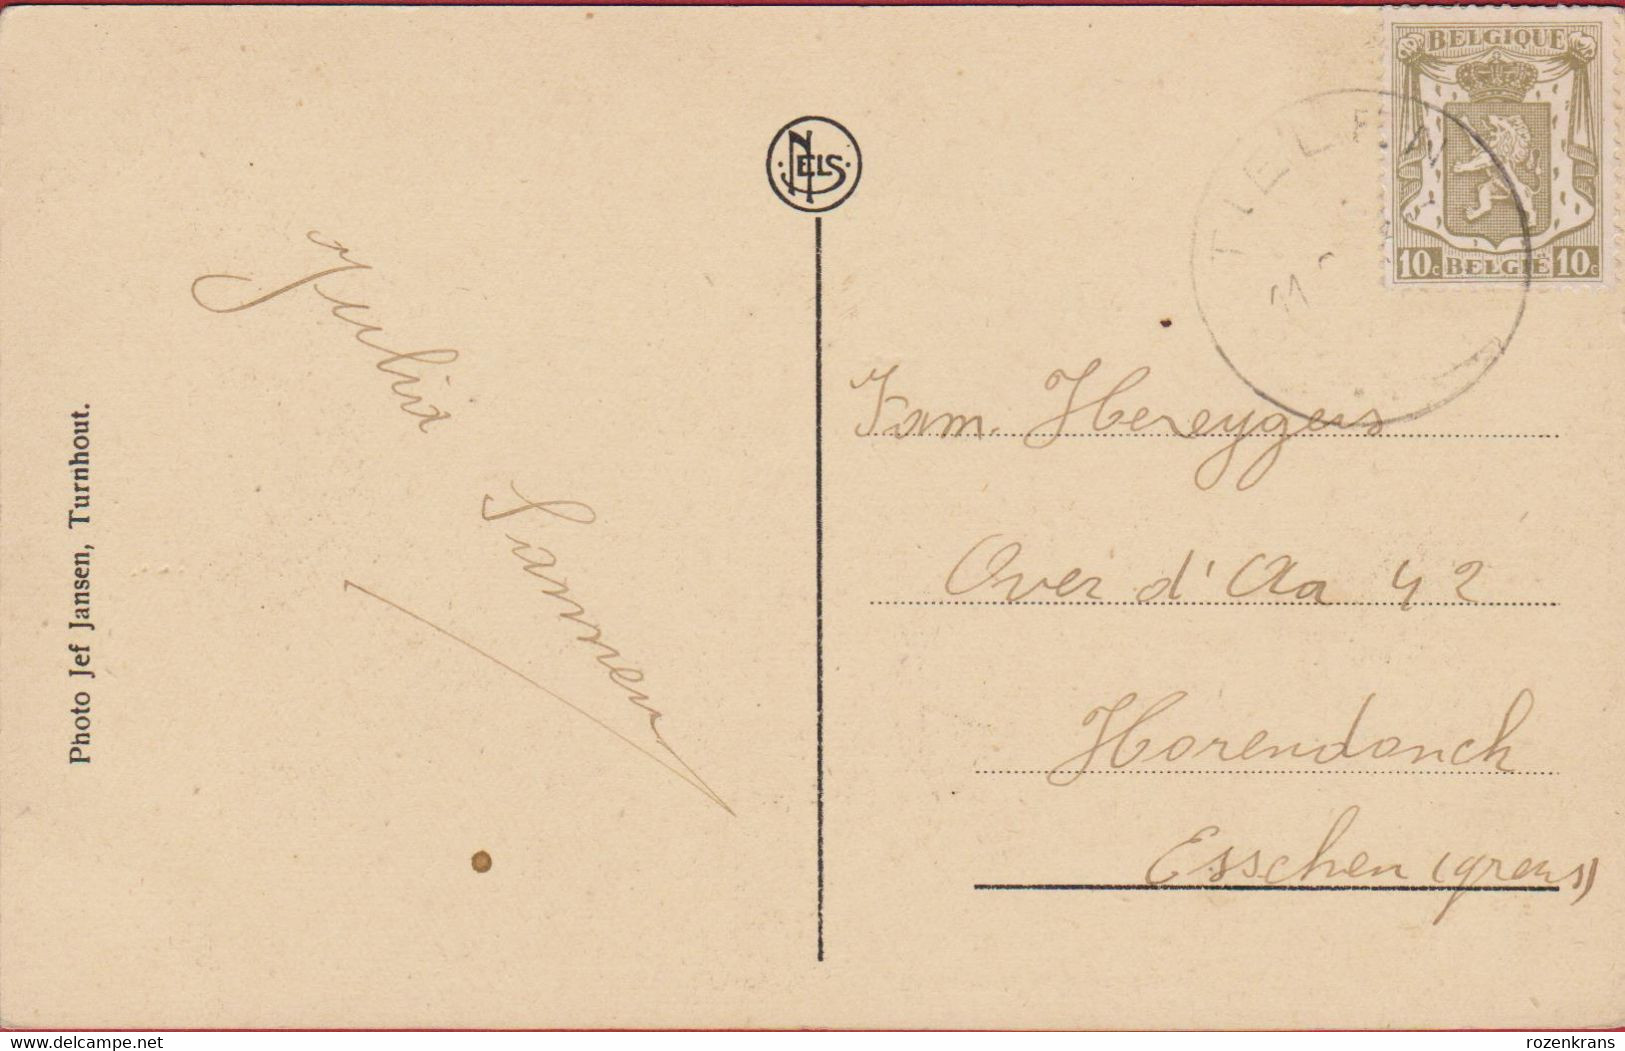 BELGIQUE
10c BELGIË 10c
TIELEN
11
NELS
Photo Jef Jansen, Turnhout.
Julia
Sannen
Fam. Hereygers
Over d'Aa 42
Horendonck
Esschen (grens)
delcampe.net
rozenkrans